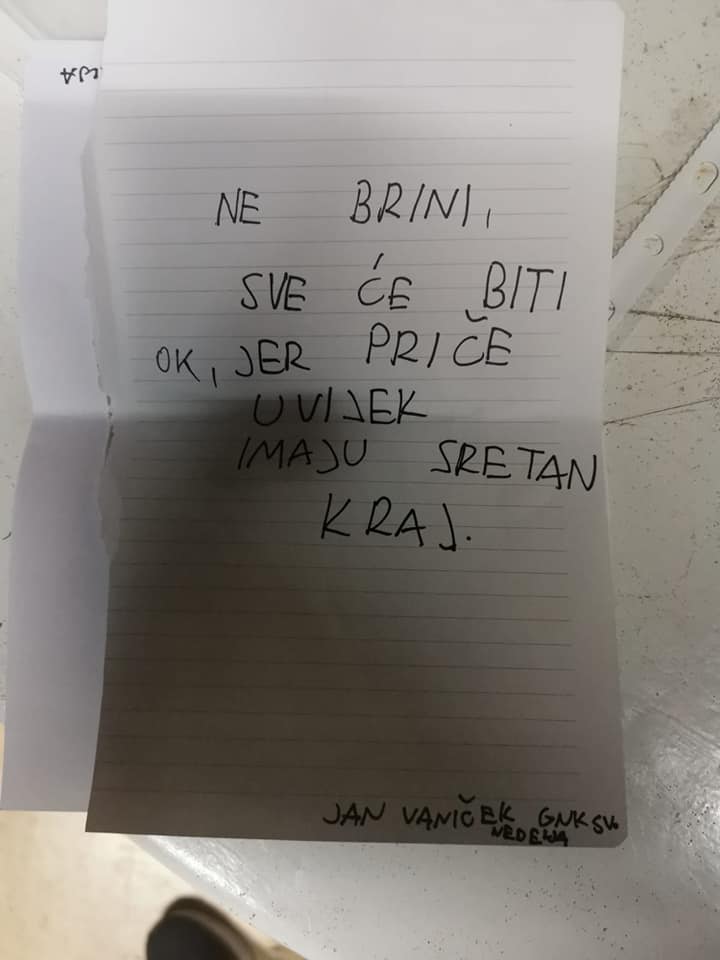 NE BRINI,
SVE ĆE BITI
OK, JER PRIČE
UVIJEK
IMAJU SRETAN
KRAJ.
JAN VANIČEK GNK SV.
NEDELJA